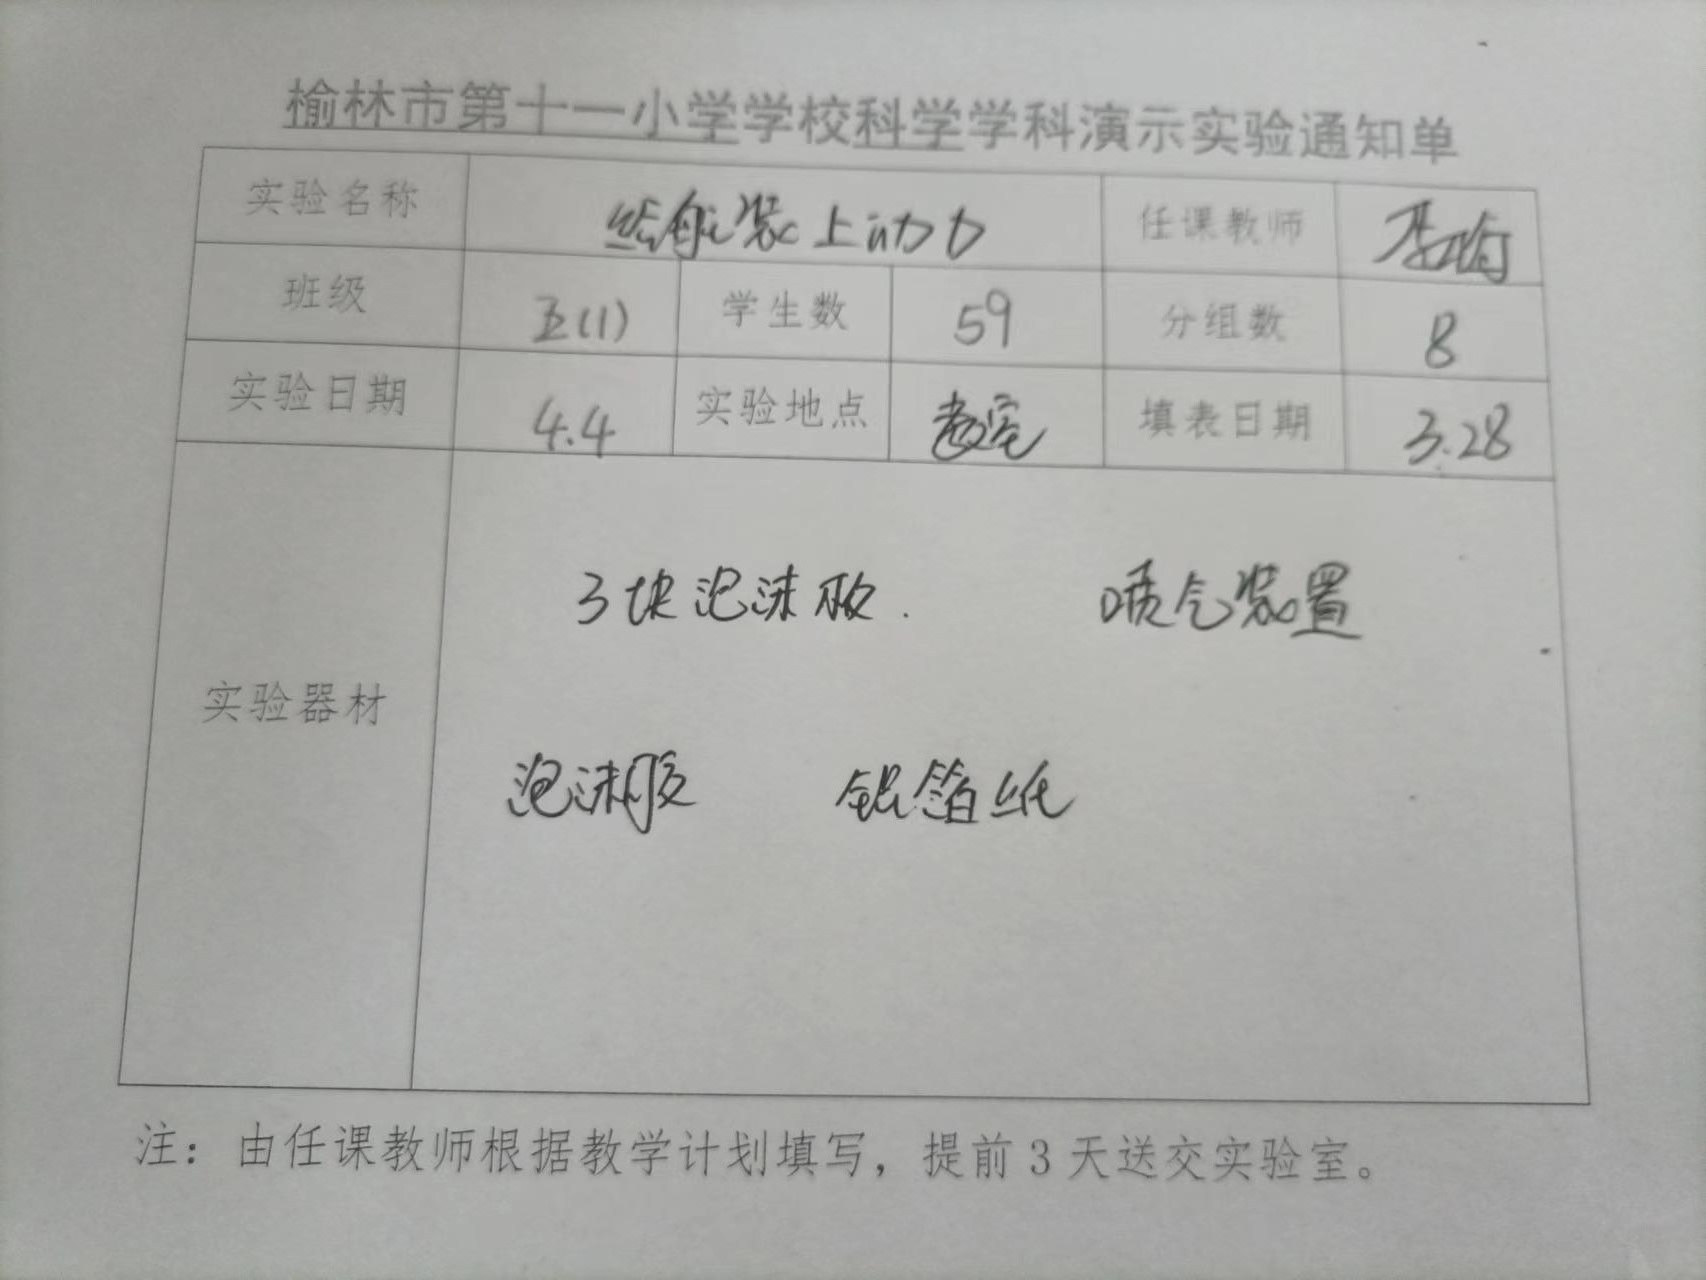 榆林市第十一小学学校科学学科演示实验通知单
实验名称 给船装上动力 任课教师
班级 五(1) 学生数 59 分组数 8
实验日期 4.4 实验地点 教室 填表日期 3.28
3块泡沫板. 喷气装置
实验器材
泡沫胶 铝箔纸
注：由任课教师根据教学计划填写，提前3天送交实验室。